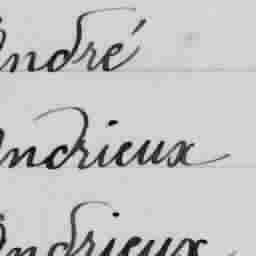 André
Andrieux
Andrieux